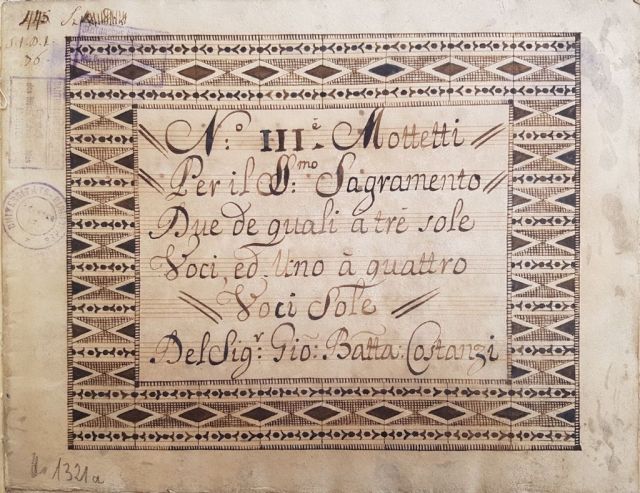 445
N.º IIIẽ. Mottetti
Per il S:mo Sagramento
Due de quali a tré sole
Voci, ed Uno à quattro
Voci Sole
Del Sig:r Gio: Batta: Costanzi
1321a